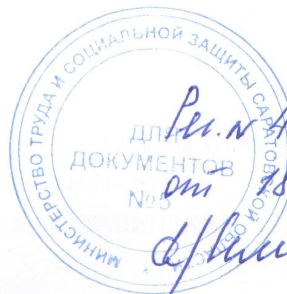 МИНИСТЕРСТВО ТРУДА И СОЦИАЛЬНОЙ ЗАЩИТЫ САРАТОВСКОЙ
ДЛЯ
ДОКУМЕНТОВ
№5
Рег. №
от 18